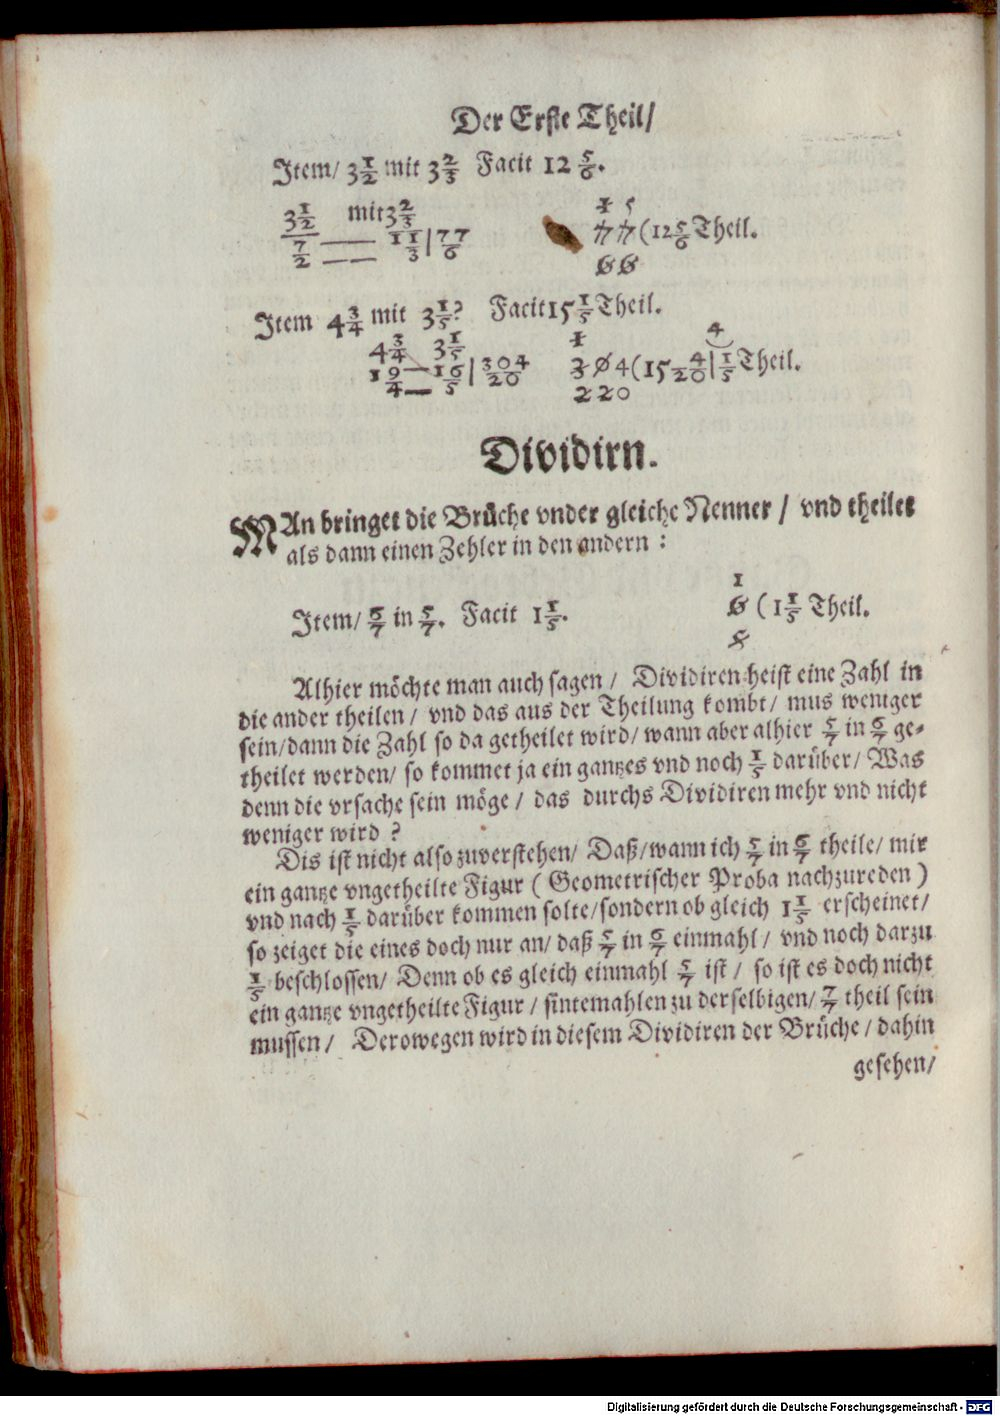 Der Erste Theil/
Item/ 3 1/2 mit 3 2/3 Facit 12 5/6.
3 1/2 mit 3 2/3
7/2 —— 11/3 | 77/6
1 5
77 (12 5/6 Theil.
66
Item 4 3/4 mit 3 1/5? Facit 15 1/5 Theil.
4 3/4 3 1/5
19/4 — 16/5 | 304/20
1 4
304 (15 4/20 | 1/5 Theil.
220
Dividirn.
MAn bringet die Brüche vnder gleiche Nenner / vnd theilet
als dann einen Zehler in den andern :
Item/ 6/7 in 5/7. Facit 1 1/5.
1
6 (1 1/5 Theil.
5
Alhier möchte man auch sagen / Dividiren heist eine Zahl in
die ander theilen / vnd das aus der Theilung kombt / mus weniger
sein/dann die Zahl so da getheilet wird/ wann aber alhier 5/7 in 6/7 ge-
theilet werden/ so kommet ja ein gantzes vnd noch 1/5 darüber/ Was
denn die vrsache sein möge / das durchs Dividiren mehr vnd nicht
weniger wird ?
Dis ist nicht also zuverstehen/ Daß/wann ich 5/7 in 6/7 theile/ mir
ein gantze vngetheilte Figur ( Geometrischer Proba nachzureden )
vnd nach 1/5 darüber kommen solte/sondern ob gleich 1 1/5 erscheinet/
so zeiget die eines doch nur an/ daß 5/7 in 6/7 einmahl / vnd noch darzu
1/5 beschlossen/ Denn ob es gleich einmahl 5/7 ist / so ist es doch nicht
ein gantze vngetheilte Figur / sintemahlen zu derselbigen/ 7/7 theil sein
mussen / Derowegen wird in diesem Dividiren der Brüche / dahin
gesehen/
Digitalisierung gefördert durch die Deutsche Forschungsgemeinschaft - DFG